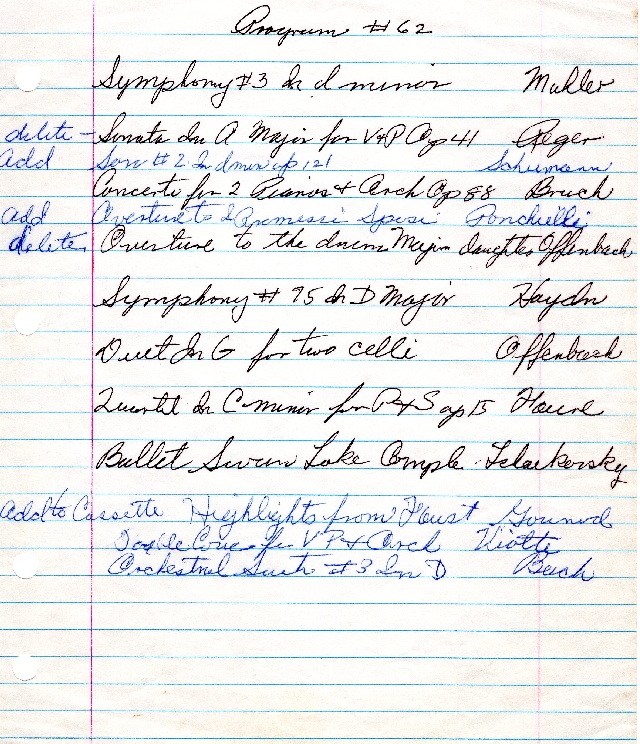 Program #62
Symphony #3 In d minor Mahler
delete - Sonata In A Major for V+P Op 41 Reger
Add Son #2 In d min op 121 Schumann
Concerto for 2 Pianos + Orch Op 88 Bruch
Add Overture to I Promessi Sposi Ponchielli
delete Overture to the drum Major daughter Offenbach
Symphony # 95 In D Major Haydn
Duet In G for two celli Offenbach
In C minor for P+S op 15 Faure
Ballet Swan Lake Comple Tchaikovsky
Add to Cassette Highlights from Faust Gounod
Double Conc for V P + Orch Viotti
Orchestral Suite #3 In D Bach